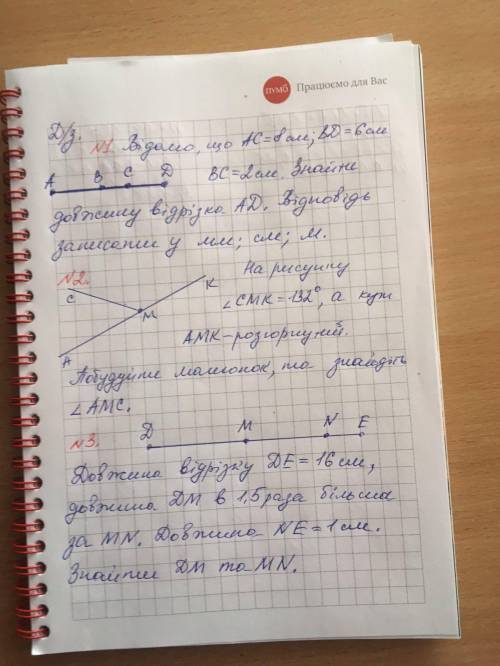 ПУМБ Працюємо для Вас
Д/з. №1. Відомо, що AC=8см; BD=6см
A B C D BC=2см. Знайти
довжину відрізка AD. Відповідь
записати у мм; см; м.
№2. На рисунку
C K M A ∠CMK=132°, а кут
AMK-розгорнутий.
Побудуйте малюнок, та знайдіть
∠AMC.
№3. D M N E
Довжина відрізку DE=16см,
довжина DM в 1,5 раза більша
за MN. Довжина NE=1см.
Знайти DM та MN.